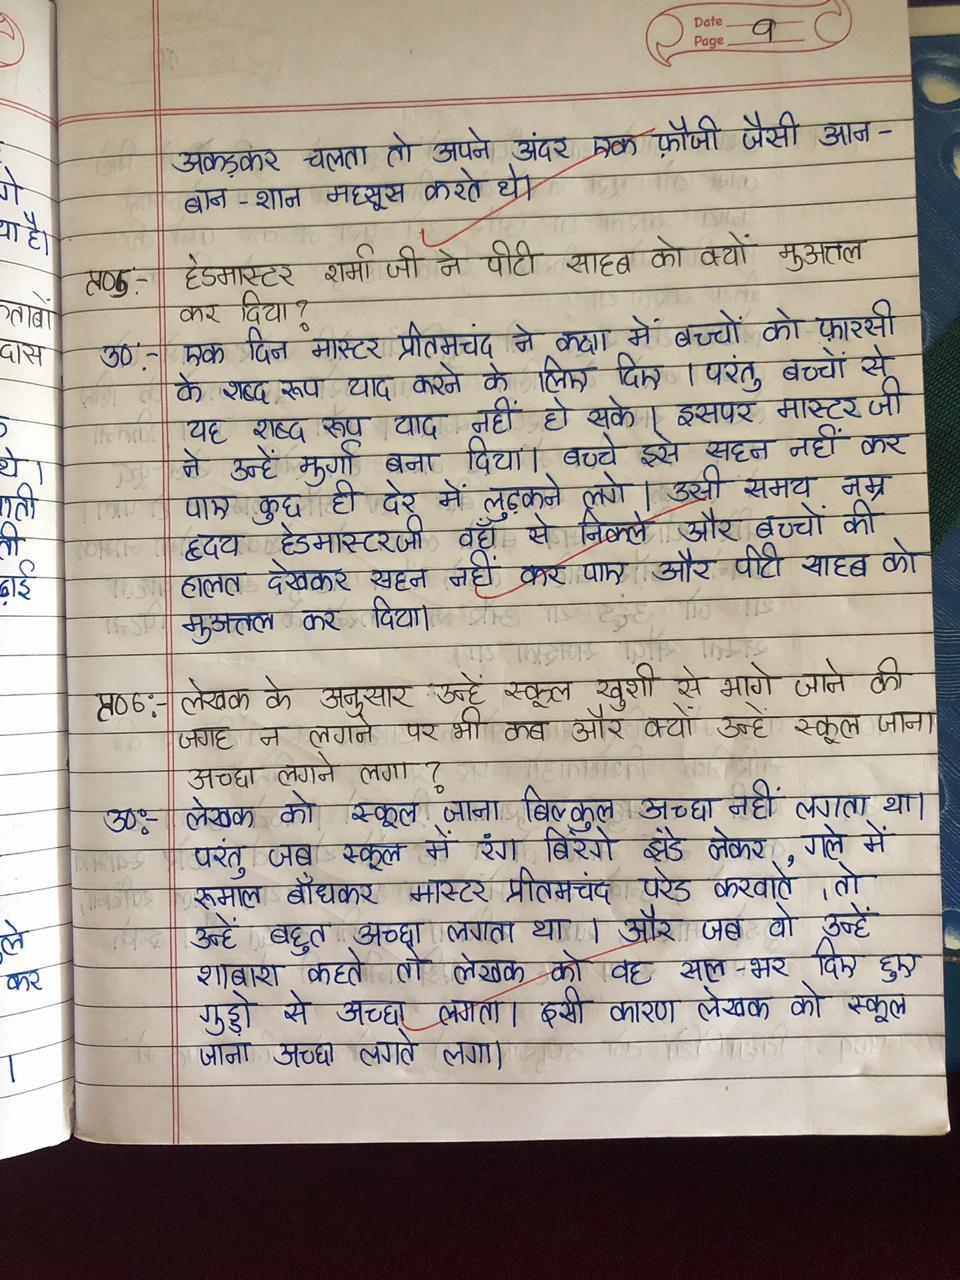 Date
Page 9
अकड़कर चलता तो अपने अंदर एक फ़ौजी जैसी आन -
बान - शान महसूस करते थे।
प्र05:- हेडमास्टर शर्मा जी ने पीटी साहब को क्यों मुअत्तल
कर दिया?
उ0:- एक दिन मास्टर प्रीतमचंद ने कक्षा में बच्चों को फ़ारसी
के शब्द रूप याद करने के लिए दिए । परंतु बच्चों से
यह शब्द रूप याद नहीं हो सके। इसपर मास्टर जी
ने उन्हें मुर्गा बना दिया। बच्चे इसे सहन नहीं कर
पाए कुछ ही देर में लुढ़कने लगे । उसी समय नम्र
हृदय हेडमास्टरजी वहाँ से निकले और बच्चों की
हालत देखकर सहन नहीं कर पाए और पीटी साहब को
मुअत्तल कर दिया।
प्र06:- लेखक के अनुसार उन्हें स्कूल खुशी से भागे जाने की
जगह न लगने पर भी कब और क्यों उन्हें स्कूल जाना
अच्छा लगने लगा ?
उ0:- लेखक को स्कूल जाना बिल्कुल अच्छा नहीं लगता था।
परंतु जब स्कूल में रंग बिरंगे झंडे लेकर, गले में
रूमाल बाँधकर मास्टर प्रीतमचंद परेड करवाते , तो
उन्हें बहुत अच्छा लगता था । और जब वो उन्हें
शाबाश कहते तो लेखक को वह साल-भर दिए हुए
गुड्डो से अच्छा लगता। इसी कारण लेखक को स्कूल
जाना अच्छा लगते लगा।
गे
या है।
ताबों
दास
थे ।
ती
ढ़ाई
ले
कर
।